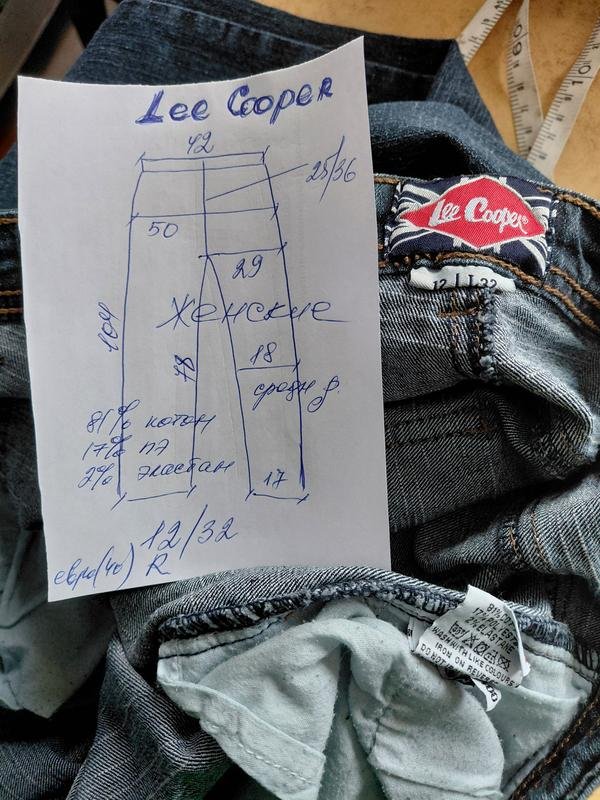 Lee Cooper
42
25/36
50
29
Женские
104
78
18
средн р.
81% котон
17% пэ
2% эластан
17
12/32
евро(40) R
Lee Cooper
12 L32
2% ELASTINE
WASH WITH LIKE COLOURS
IRON ON REVERSE
DO NOT
60